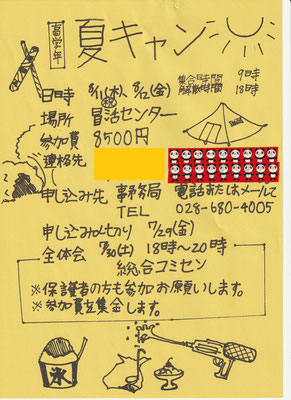 高学年
夏キャン
日時 8/11(木)、8/12(金)
㊗
集合時間 9時
解散時間 18時
場所 冒活センター
参加費 8500円
連絡先
申し込み先 事務局 電話またはメールで
TEL 028-680-4005
申し込み〆切り 7/29(金)
全体会 7/30(土) 18時〜20時
総合コミセン
※保護者の方も参加お願いします。
※参加費を集金します。
氷